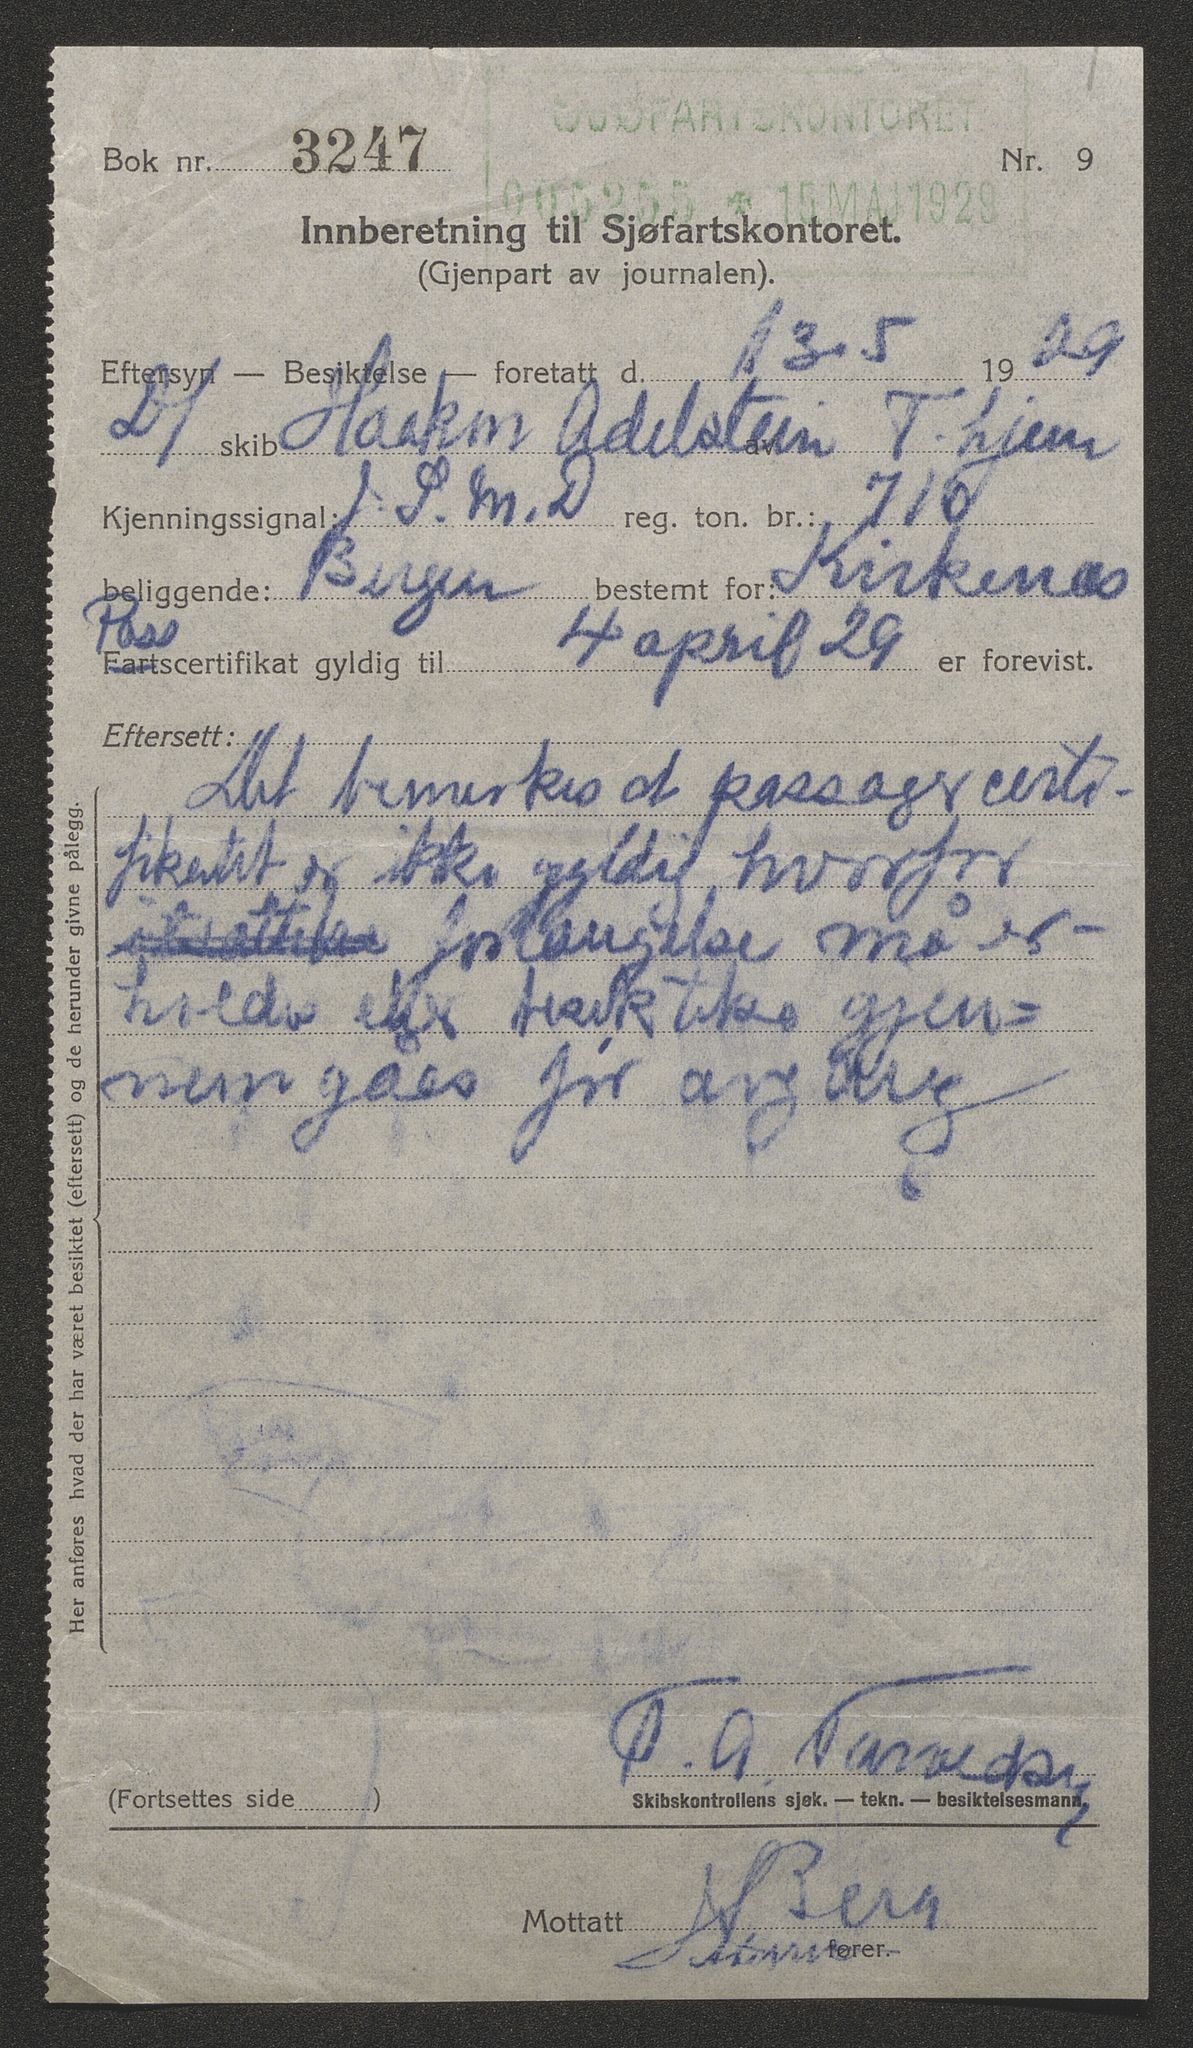 SJØFARTSKONTORET
Bok nr. 3247 Nr. 9
005255 * 15 MAJ 1929
Innberetning til Sjøfartskontoret.
(Gjenpart av journalen).
Eftersyn — Besiktelse — foretatt d. 13-5 1929
D/ skib Haakon Adelstein av T.hjem
Kjenningssignal: reg. ton. br.: 710
beliggende: Bergen bestemt for: Kirkenæs
Pass
Fartscertifikat gyldig til 4 april 29 er forevist.
Eftersett:
Det bemerkes at passagercerti-
fikatet er ikke gyldig, hvorfor
forlængelse må er-
holdes eller besiktikes gjen=
nemgåes før avgang
Her anføres hvad der har været besiktet (eftersett) og de herunder givne pålegg.
(Fortsettes side )
Skibskontrollens sjøk. — tekn. — besiktelsesmann.
Mottatt Berg
fører.